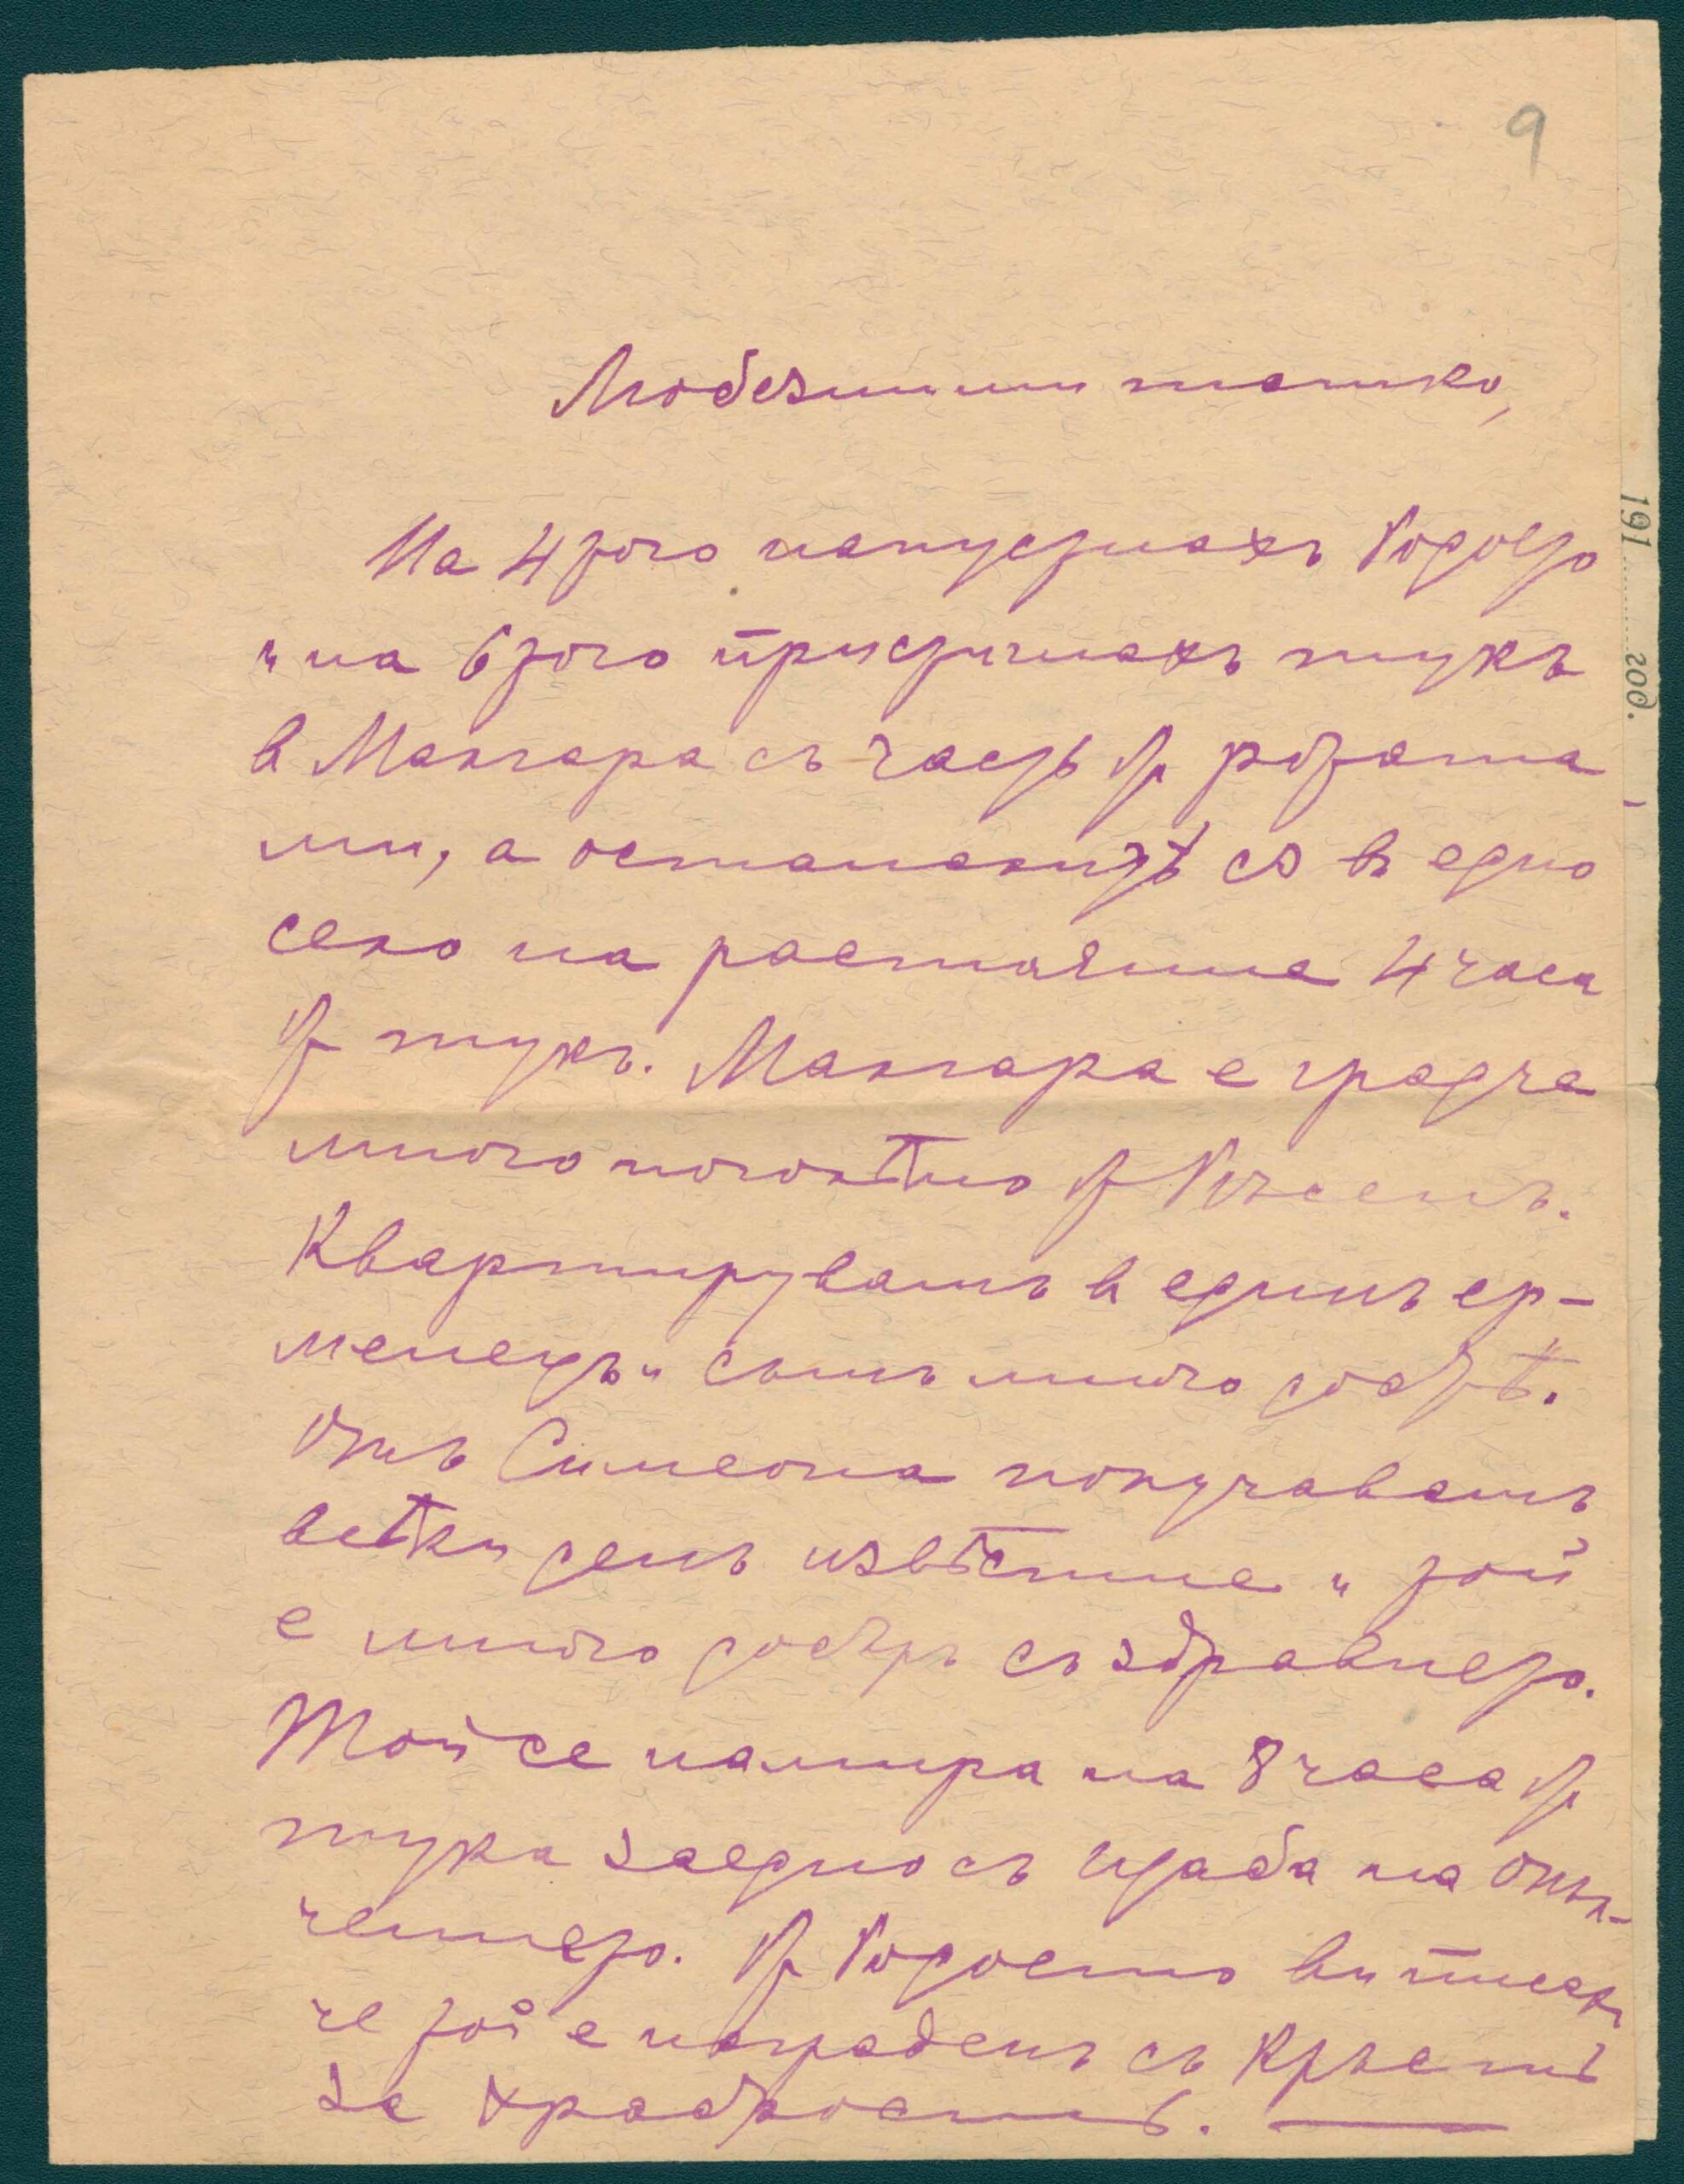 9
Любезнии ми татко,
На 4 того напуснахъ Родосто
и на 6 того пристигнахъ тукъ
в Малгара съ часть от ротата
ми, а останалитѣ сѫ въ едно
село на растояние 4 часа
от тукъ. Малгара е градче
много поголѣмо от Ксъсенъ.
Квартирувамъ в единъ ер-
менецъ и съмъ много добрѣ.
Отъ Симеона получавамъ
всѣки день извѣстие и той
е много добъръ съ здравието.
Той се намира на 8 часа от
тука заедно съ щаба на опъл-
чението. От Родосто ви писахъ
че той е награденъ съ Кръстъ
за храбрость. —
191 год.